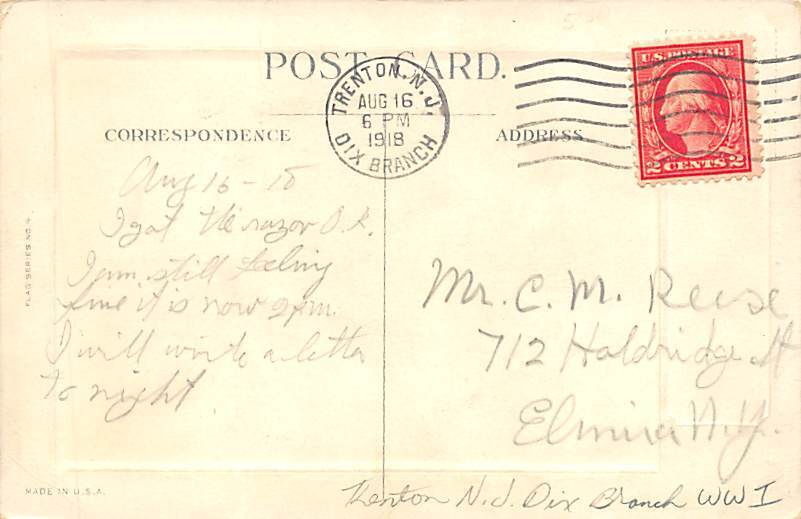 POST CARD.
TRENTON, N.J.
AUG 16
6 PM
1918
DIX BRANCH
U.S. POSTAGE
2 CENTS 2
CORRESPONDENCE
ADDRESS
Aug 16 - 18
I got the razor O.K.
I am still feeling
fine it is now 2 p.m.
I will write a letter
to night.
Mr. C. M. Reese
712 Holdridge St
Elmira N.Y.
FLAG SERIES NO. 4.
MADE IN U.S.A.
Trenton N.J. Dix Branch WW I